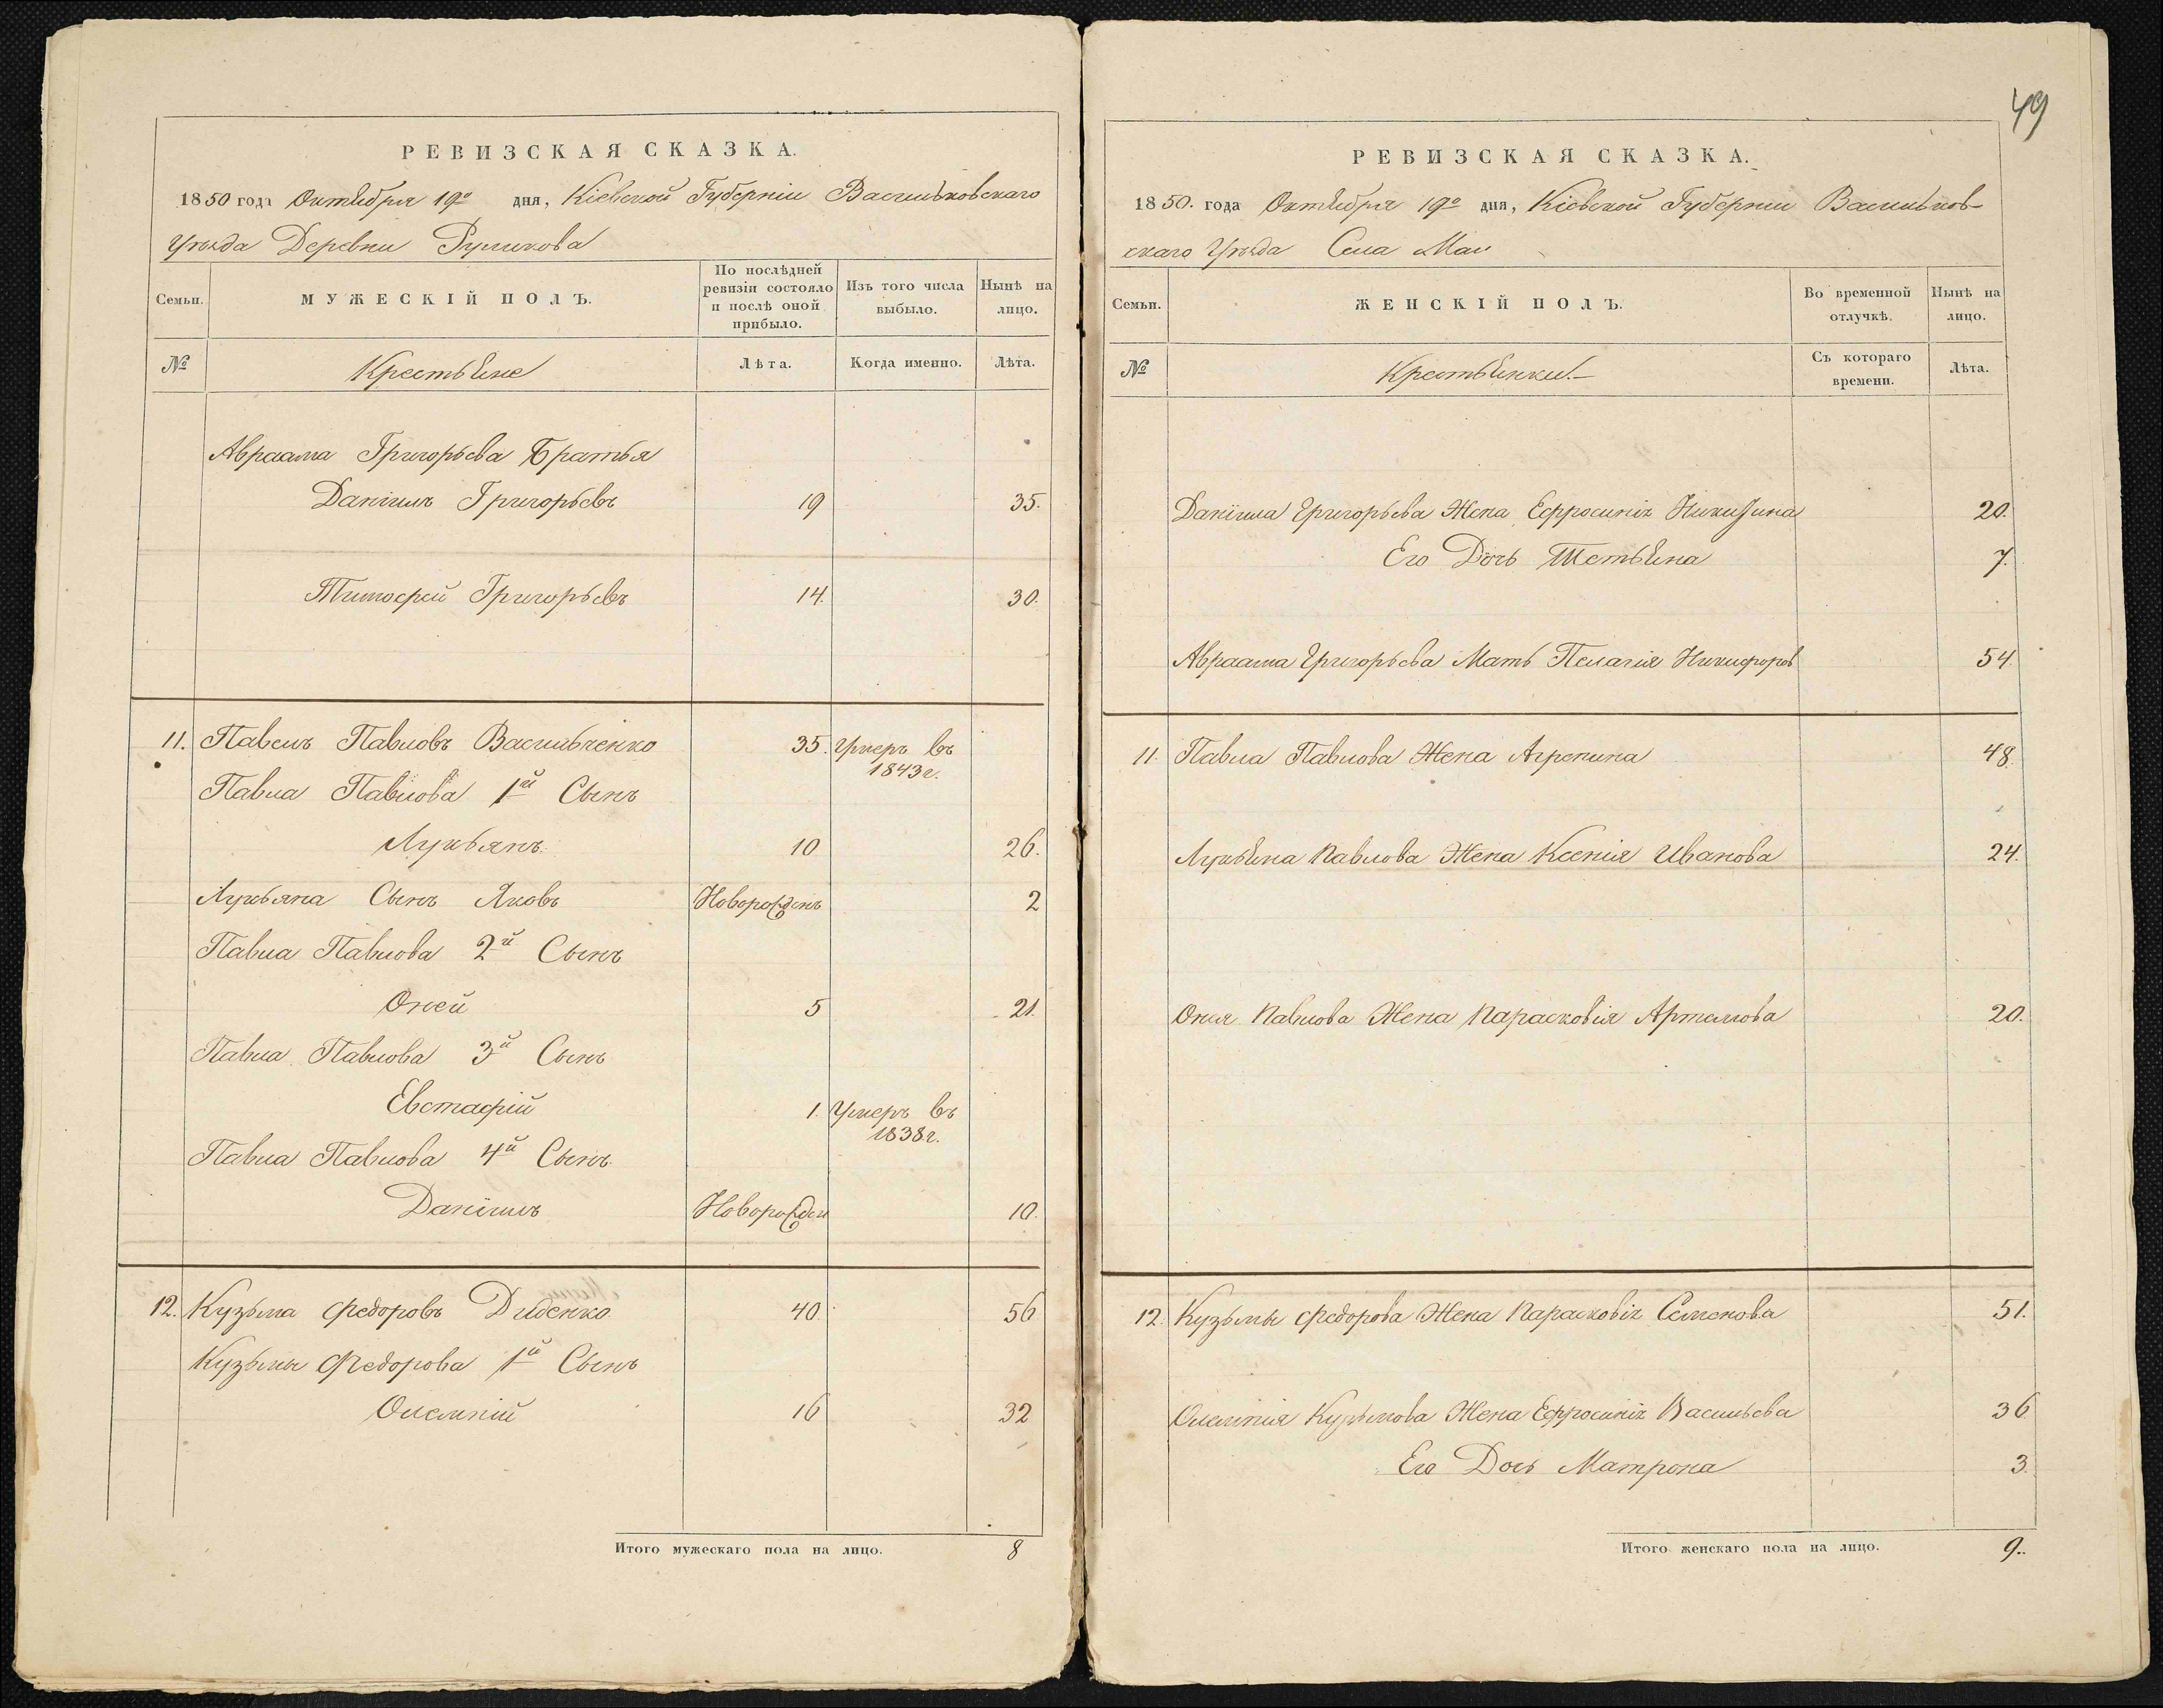 РЕВИЗСКАЯ СКАЗКА.
1850 года Октября 19го дня, Кіевской Губерніи Васильковскаго
Уѣзда Деревни Руликова
Семьи.
МУЖЕСКІЙ ПОЛЪ.
По послѣдней ревизіи состояло и послѣ оной прибыло.
Изъ того числа выбыло.
Нынѣ на лицо.
№
Крестьяне
Лѣта.
Когда именно.
Лѣта.
Авраама Григорьева Братья
Даніилъ Григорьевъ 19 35.
Тимофей Григорьевъ 14. 30.
11. Павелъ Павловъ Васильченко 35. Умеръ въ
1843г.
Павла Павлова 1й Сынъ
Лукьянъ 10 26.
Лукьяна Сынъ Яковъ Новорожденъ 2
Павла Павлова 2й Сынъ
Оней 5 21.
Павла Павлова 3й Сынъ
Евстафій 1. Умеръ въ
1838г.
Павла Павлова 4й Сынъ
Даніилъ Новорожден 10.
12. Кузьма Федоровъ Диденко 40. 56
Кузьмы Федорова 1й Сынъ
Олемпій 16 32
Итого мужескаго пола на лицо. 8
49
РЕВИЗСКАЯ СКАЗКА.
1850. года Октября 19го дня, Кіевской Губерніи Васильков-
скаго Уѣзда Села Мал
Семьи.
ЖЕНСКІЙ ПОЛЪ.
Во временной отлучкѣ.
Нынѣ на лицо.
№
Крестьянки.
Съ котораго времени.
Лѣта.
Даніила Григорьева Жена Ефросинія 20.
Его Дочь Тетьяна 7.
Авраама Григорьева Мать Пелагія Никифоров 54.
11. Павла Павлова Жена Агрепина 48.
Лукьяна Павлова Жена Ксенія Иванова 24.
Онея Павлова Жена Парасковія Артемова 20.
12. Кузьмы Федорова Жена Парасковія Семенова 51.
Олемпія Кузьмова Жена Ефросинія Васильева 36
Его Дочь Матрона 3.
Итого женскаго пола на лицо. 9.